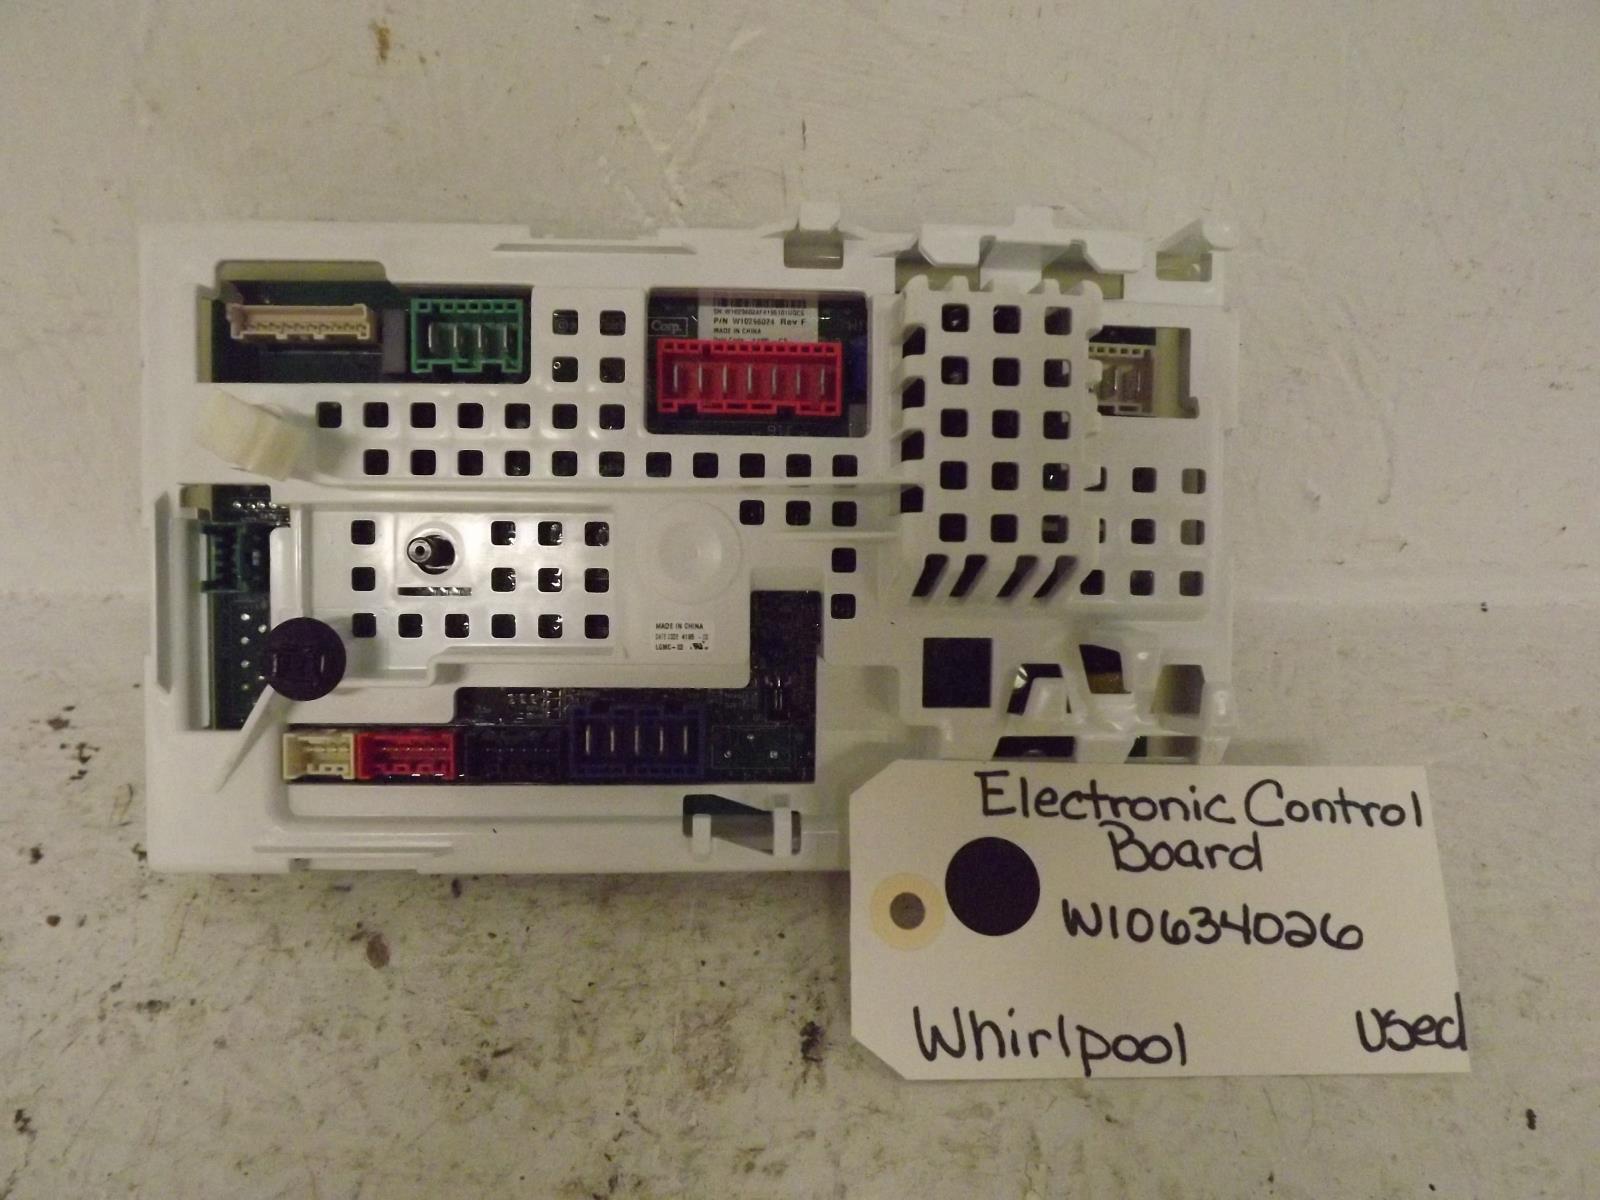 Corp.
P/N W10296024 Rev F
MADE IN CHINA
MADE IN CHINA
DATE CODE 4195
LGMC-
Electronic Control
Board
W10634026
Whirlpool
Used